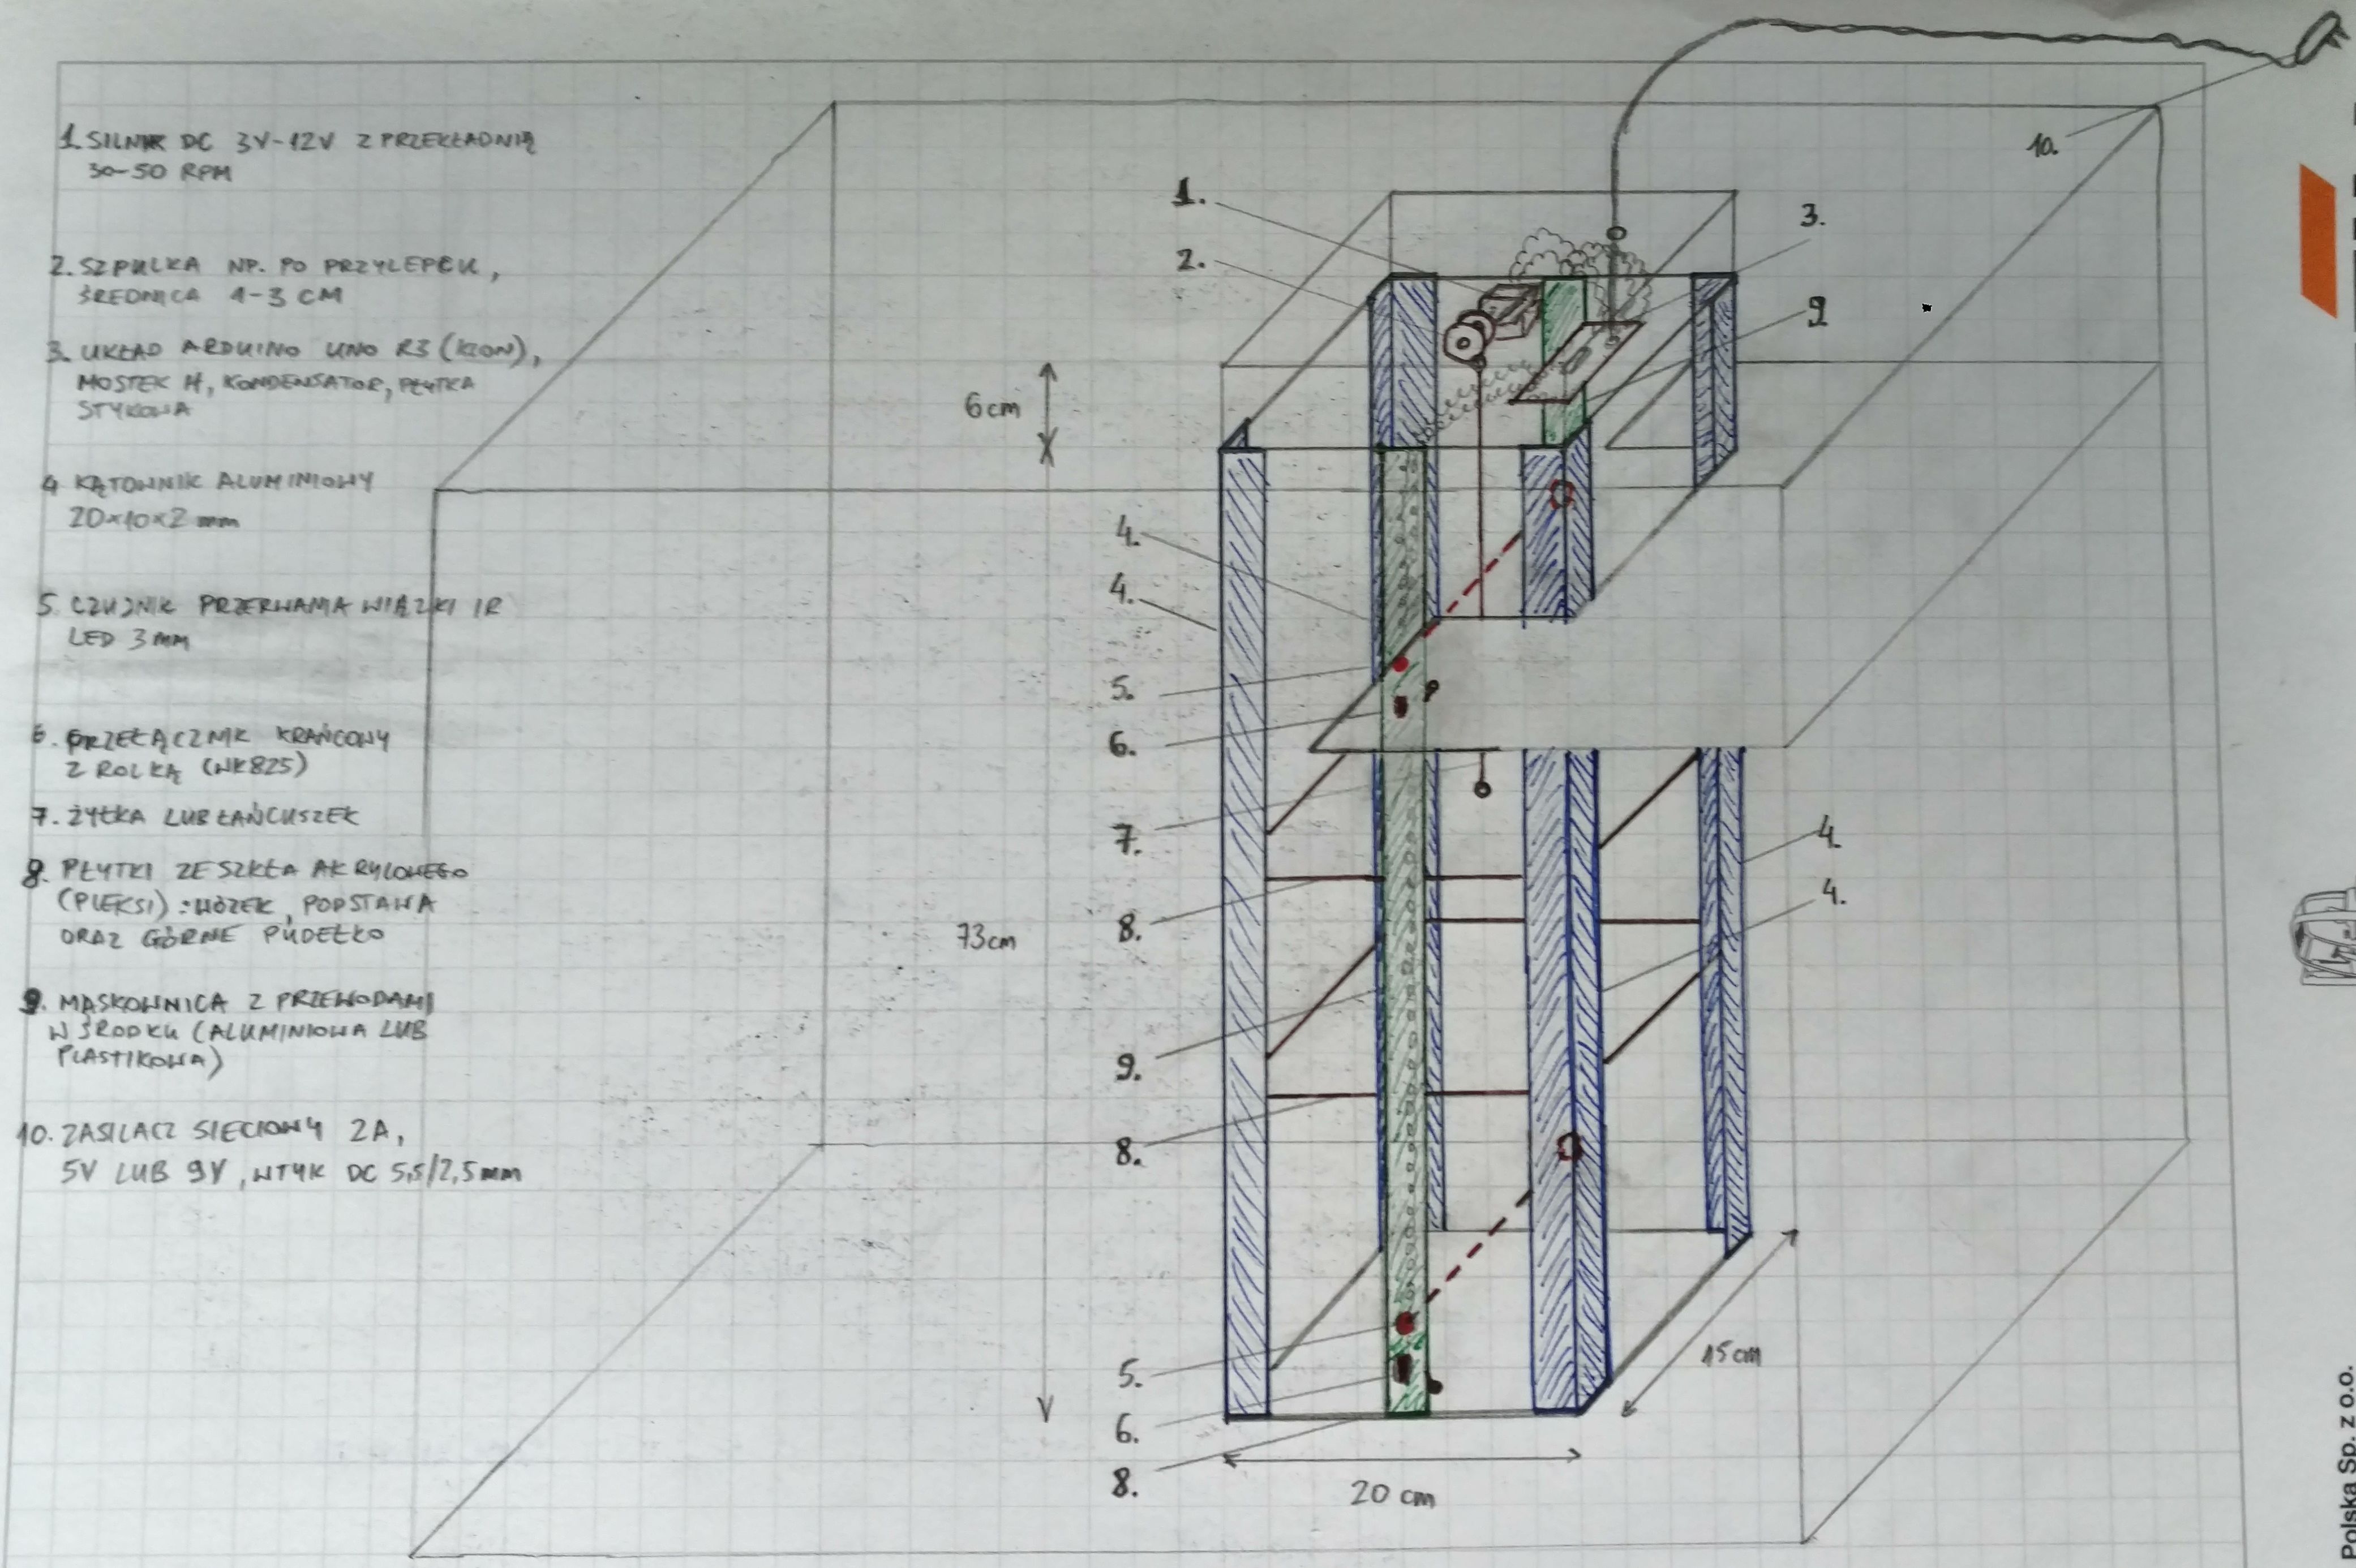 1. SILNIK DC 3V-12V Z PRZEKŁADNIĄ
30-50 RPM
2. SZPULKA NP. PO PRZYLEPCU,
ŚREDNICA 1-3 CM
3. UKŁAD ARDUINO UNO R3 (KLON),
MOSTEK H, KONDENSATOR, PŁYTKA
STYKOWA
4 KĄTOWNIK ALUMINIOWY
20x10x2 mm
5. CZUJNIK PRZERWANIA WIĄZKI IR
LED 3 mm
6. PRZEŁĄCZNIK KRAŃCOWY
Z ROLKĄ (WK825)
7. ŻYŁKA LUB ŁAŃCUSZEK
8. PŁYTKI ZE SZKŁA AKRYLOWEGO
(PLEKSI) : WÓZEK, PODSTAWA
ORAZ GÓRNE PUDEŁKO
9. MASKOWNICA Z PRZEWODAMI
W ŚRODKU (ALUMINIOWA LUB
PLASTIKOWA)
10. ZASILACZ SIECIOWY 2A,
5V LUB 9V, WTYK DC 5,5/2,5mm
10.
1.
3.
2.
9
6cm
4.
4.
5.
6.
7.
4.
4.
8.
73cm
9.
8.
15cm
5.
6.
8.
20 cm
Polska Sp. z o.o.